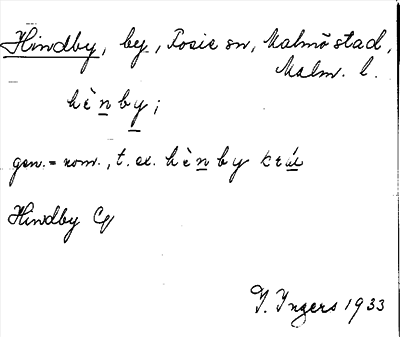 Hindby, by, Fosie sn, Malmö stad,
Malm. l.
hènby;
gen. = nom., t. ex. hènby
Hindby
I. Ingers 1933